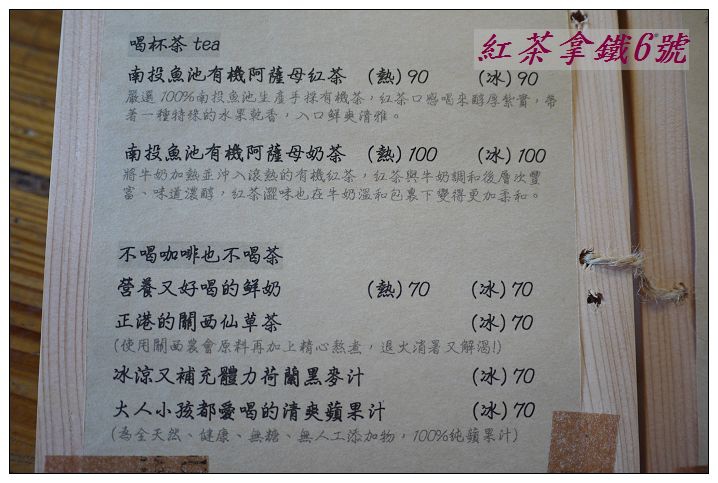 紅茶拿鐵6號
喝杯茶 tea
南投魚池有機阿薩母紅茶 (熱) 90 (冰) 90
嚴選100%南投魚池生產手採有機茶,紅茶口感喝來醇厚紮實,帶
著一種特殊的水果乾香,入口鮮爽清雅。
南投魚池有機阿薩母奶茶 (熱) 100 (冰) 100
將牛奶加熱並沖入滾熱的有機紅茶,紅茶與牛奶調和後層次豐
富、味道濃醇,紅茶澀味也在牛奶溫和包裹下變得更加柔和。
不喝咖啡也不喝茶
營養又好喝的鮮奶 (熱) 70 (冰) 70
正港的關西仙草茶 (冰) 70
(使用關西農會原料再加上精心熬煮,退火消暑又解渴!)
冰涼又補充體力荷蘭黑麥汁 (冰) 70
大人小孩都愛喝的清爽蘋果汁 (冰) 70
(為全天然、健康、無糖、無人工添加物,100%純蘋果汁)